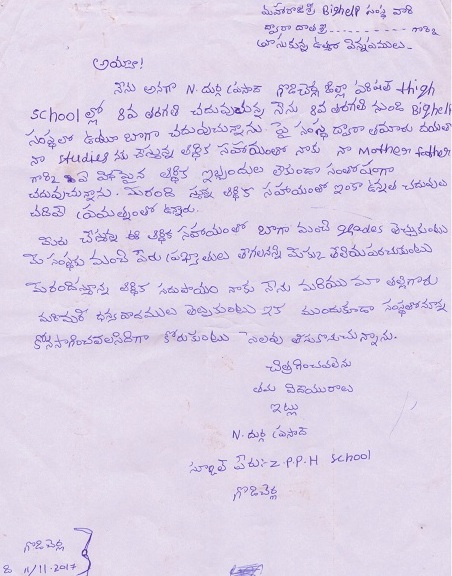 మహారాజశ్రీ Bighelp సంస్థ వారి
ద్వారా దాతశ్రీ ................ గారికి
వ్రాసుకున్న ఉత్తర విన్నపములు.
అయ్యా!
నేను అనగా N. దుర్గ ప్రసాద్ గొడిచెర్ల జిల్లా పరిషత్ High
School ల్లో 8వ తరగతి చదువుచున్న నేను 8వ తరగతి నుండి Bighelp
సంస్థలో ఉండి బాగా చదువుచున్నాను. పై సంస్థ ద్వారా తమారు దయతో
నా studies ను చేస్తున్న ఆర్థిక సహాయంతో నాకు నా Mother father
గారికి ఏ విధమైన ఆర్థిక ఇబ్బందులు లేకుండా సంతోషంగా
చదువుచున్నాను. మీరంది స్తున్న ఆర్థిక సహాయంతో ఇంకా ఉన్నత చదువులు
చదివే ప్రయత్నంతో ఉన్నాను.
మీరు చేస్తున్న ఈ ఆర్థిక సహాయంతో బాగా మంచి grades తెచ్చుకుంటు
మీ సంస్థకు మంచి పేరు ప్రఖ్యాతులు తేగలనని మీకు తెలియపరచుకుంటు
మీరందిస్తున్న ఆర్థిక సదుపాయం నాకు నేను మరియు మా తల్లిగారు
మరిమరి ధన్యవాదములు తెల్పుకుంటు ఇక ముందుకూడా సంస్థలో నన్ను
కొనసాగించవలసినదిగా కోరుకుంటు సెలవు తీసుకొనుచున్నాను.
చిత్తగించవలెను
తమ విదేయురాలు
ఇట్లు
N. దుర్గ ప్రసాద్
స్కూల్ పేరు:- Z.P.P.H School
గొడిచెర్ల
గొడిచెర్ల
11/11-2017